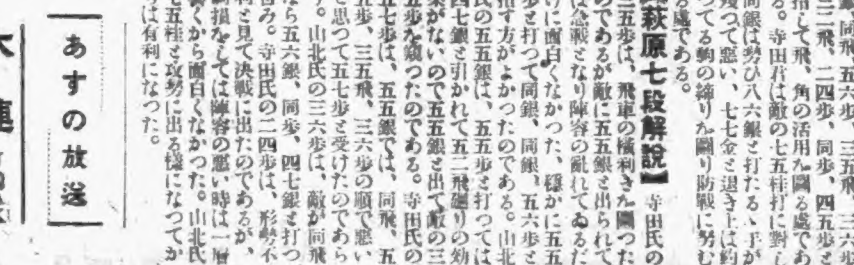 銀、同飛、五六歩、三五飛、三六歩
三二飛、二四歩、同歩、四五歩と
指して飛、角の活用を圖る處であ
る。寺田君は敵の七五桂打に對し
同銀は勢ひ八六銀と打たるゝ手が
殘つて惡い、七七金と退き上は約
つてる駒の締りを圖り防戰に努む
る處である。
【萩原七段解說】寺田氏の
三五歩は、飛車の橫利きを圖つた
のであるが敵に五五銀と出られて
は急戰となり陣容の亂れてゐるだ
けに面白くなかつた、穩かに五五
歩と打つて同銀、同銀、五六歩と
指す方がよかつたのである。山北
氏の五五銀は、五五歩と打つては
四七銀と引かれて五二飛廻りの効
果がないので五五銀と出て敵の三
五歩を窺つたのである。寺田氏の
五七歩は、五五銀では、同飛、五
五歩、三五飛、三六歩の順で惡い
と思つて五七歩と受けたのであら
う。山北氏の三六歩は、敵が同飛
なら五六銀、同歩、四七銀と打つ
含み。寺田氏の二四歩は、形勢不
利と見て決戰に出たのであるが、
駒損をしては陣容の惡い時は一層
惡くから面白くなかつた。山北氏
七五桂と攻勢に出る樣になつてか
らは有利になつた。
あすの放送
大連